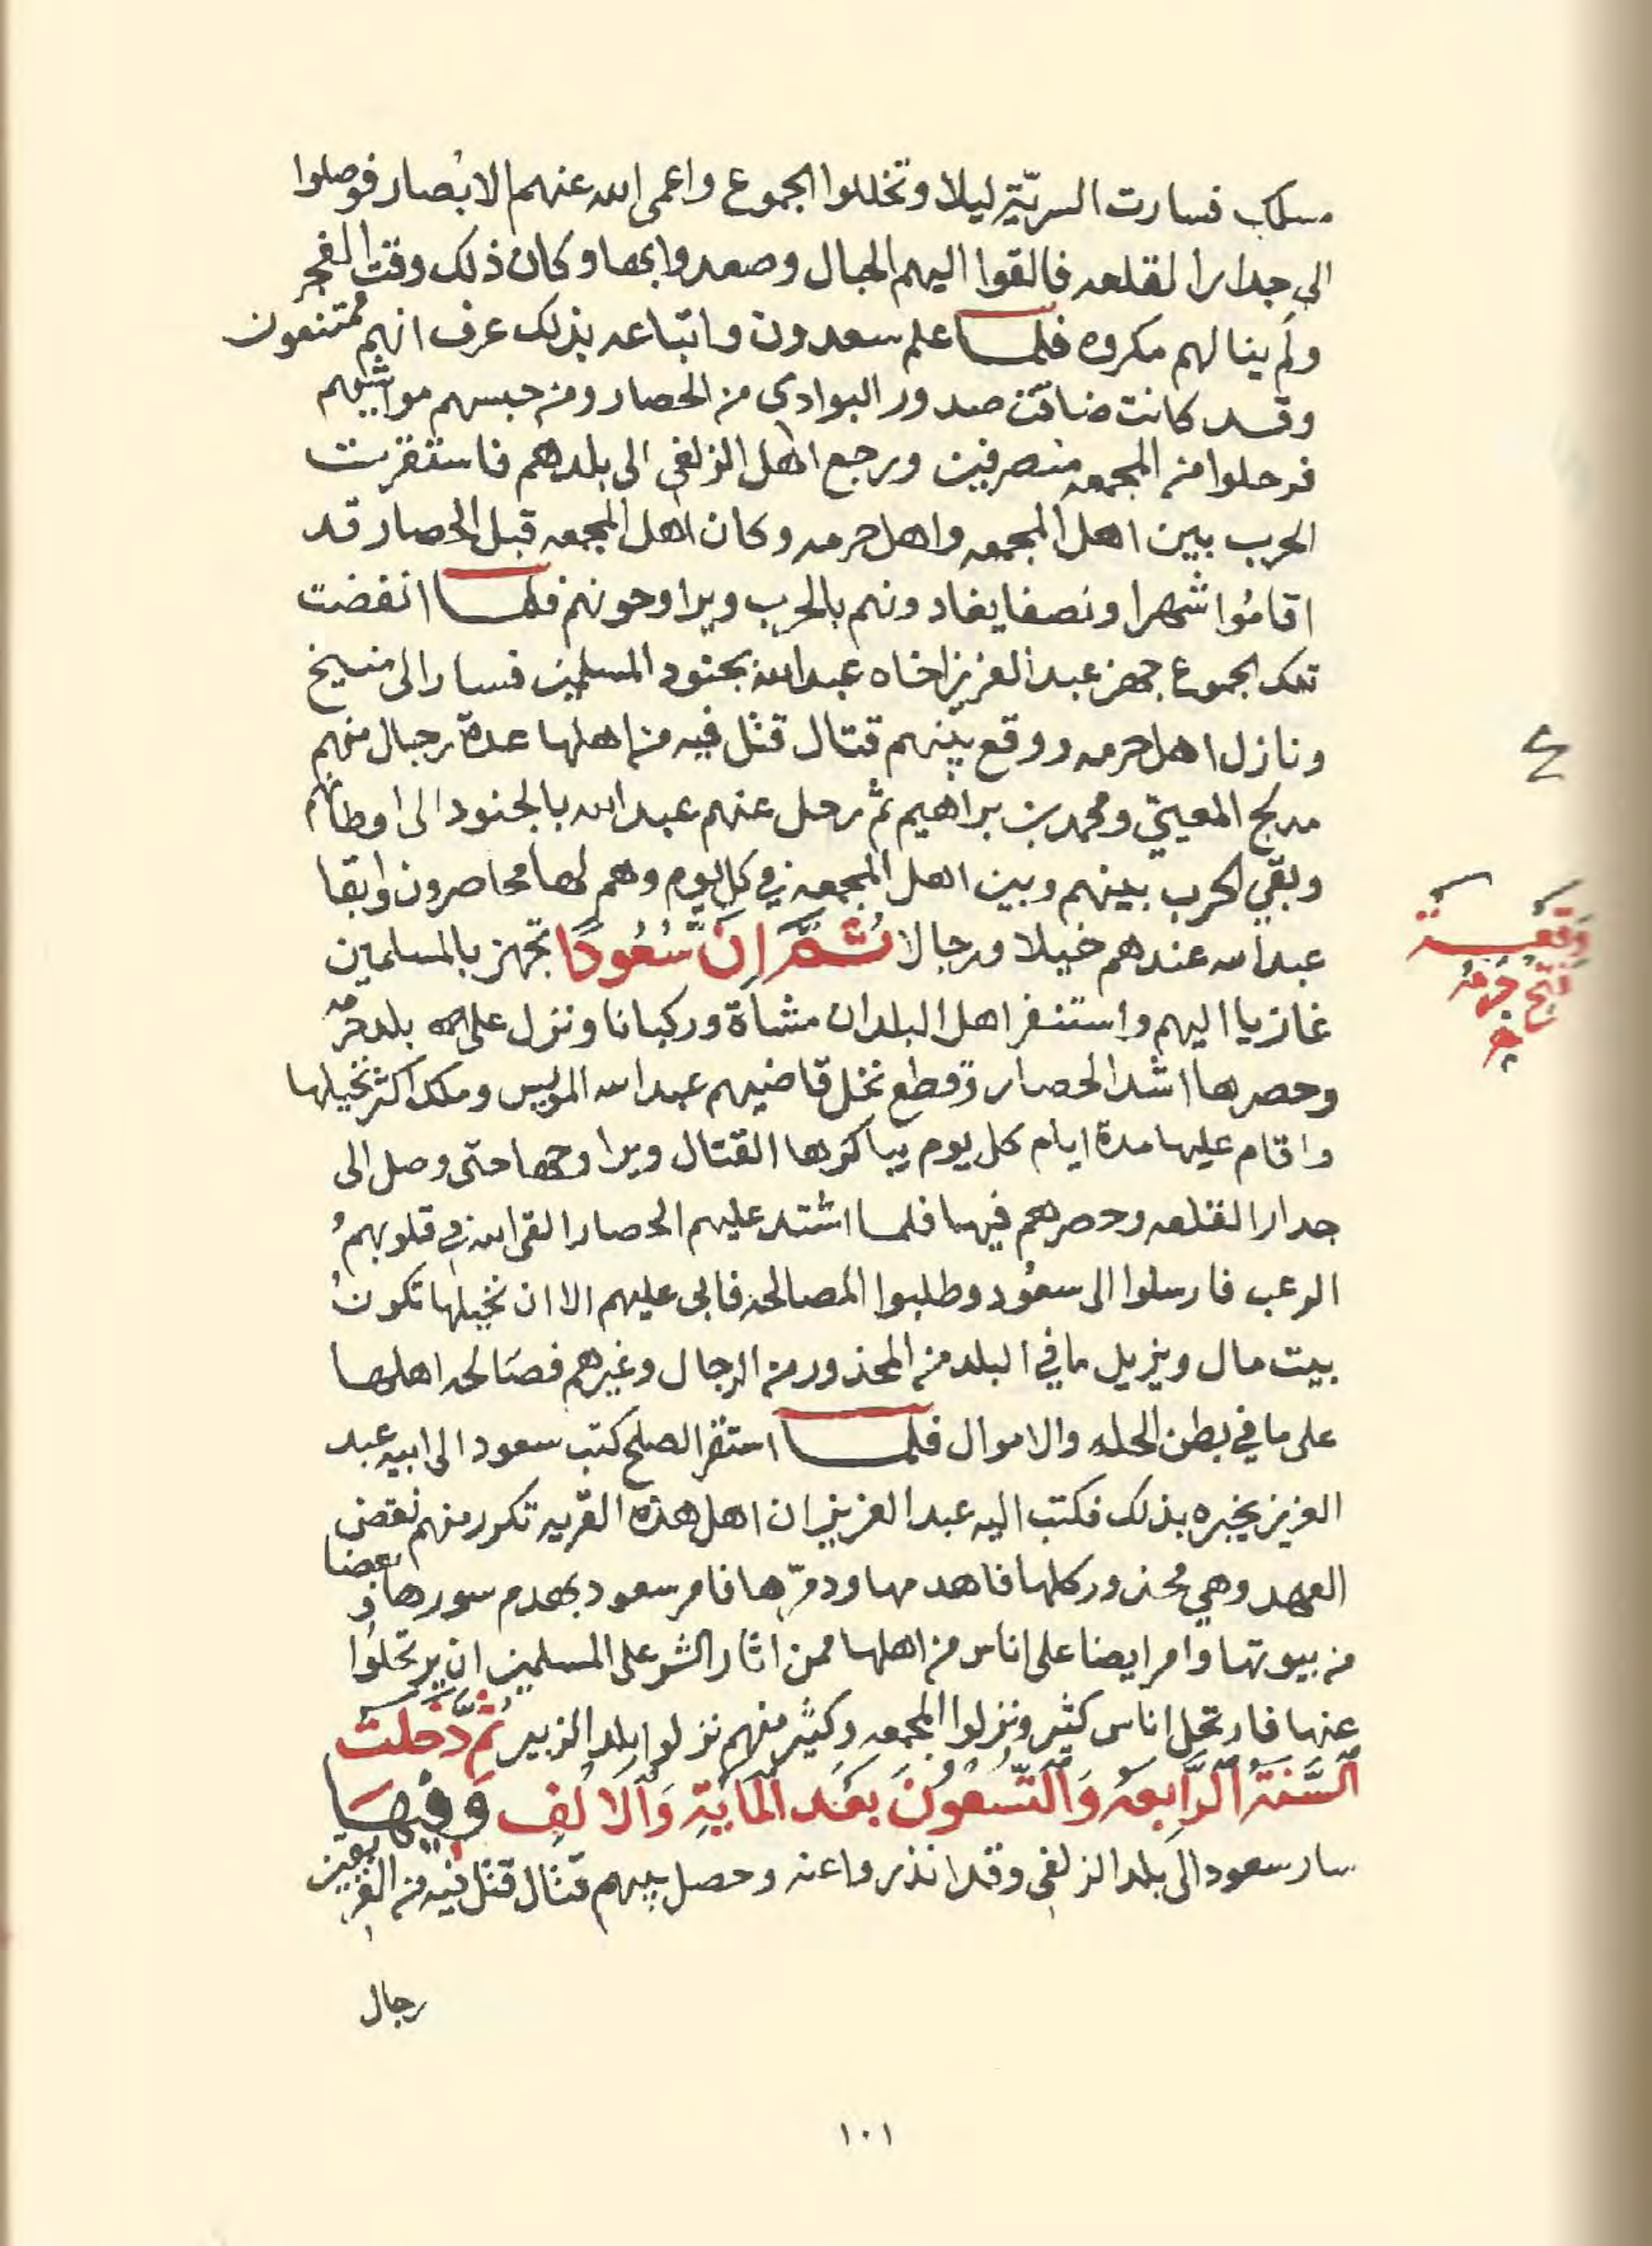 مسلك فسارت السريّة ليلا وتخللوا الجموع واعمى الله عنهم الابصار فوصلوا
الى جدار القلعه فالقوا اليهم الحبال وصعدوا بها وكان ذلك وقت الفجر
ولم ينالهم مكروه فلما علم سعدون واتباعه بذلك عرف انهم ممتنعون
وقد كانت ضاقت صدور البوادي من الحصار ومن حبسهم مواشيهم
فرحلوا من المجمعه منصرفين ورجع اهل الزلفي الى بلدهم فاستقرت
الحرب بين اهل المجمعه واهل حرمه وكان اهل المجمعه قبل الحصار قد
اقاموا شهرا ونصفا يغادونهم بالحرب ويراوحونهم فلما انفضت
تلك الجموع جهز عبد العزيز اخاه عبدالله بجنود المسلمين فسار الى منيخ
ونازل اهل حرمه ووقع بينهم قتال قتل فيه من اهلها عدة رجال منهم
مدلج المعييّ ومحمد بن براهيم ثم رحل عنهم عبدالله بالجنود الى اوطانهم
وبقي الحرب بينهم وبين اهل المجمعه في كل يوم وهم لها محاصرون وابقا
عبدالله عندهم خيلا ورجالا ثُمَّ اِنَّ سُعُودًا تجهز بالمسلمين
غازيا اليهم واستنفر اهل البلدان مشاة وركبانا ونزل على بلد حرمه
وحصرها اشد الحصار وقطع نخل قاضيهم عبدالله المويس وملك اكثر نخيلها
واقام عليها مدة ايام كل يوم يباكرها القتال ويراوحها حتى وصل الى
جدار القلعه وحصرهم فيها فلما اشتد عليهم الحصار القى الله في قلوبهم
الرعب فارسلوا الى سعود وطلبوا المصالحه فابى عليهم الا ان نخيلها تكون
بيت مال ويزيل ما في البلد من المحذور من الرجال وغيرهم فصالحه اهلها
على ما في بطن الحله والاموال فلما استقر الصلح كتب سعود الى ابيه عبد
العزيز يخبره بذلك فكتب اليه عبد العزيز ان اهل هذه القريه تكرر منهم نقض
العهد وهي محذور كلها فاهدمها ودمّرها فامر سعود بهدم سورها وبعضا
من بيوتها وامر ايضا على اناس من اهلها ممن اثار الشر على المسلمين ان يرتحلوا
عنها فارتحل اناس كثير ونزلوا المجمعه وكثير منهم نزلوا بلد الزبير ثُمَّ دَخَلَت
السَّنَةُ الرَّابِعَه وَالتِّسْعُونَ بَعْدَ المَايَةِ وَالاَلف وَفِيهَا
سار سعود الى بلد الزلفي وقد انذروا عنه وحصل بينهم قتال قتل فيه من الفريقين
رجال
٤
وقعة
فتح حرمه
١٠١